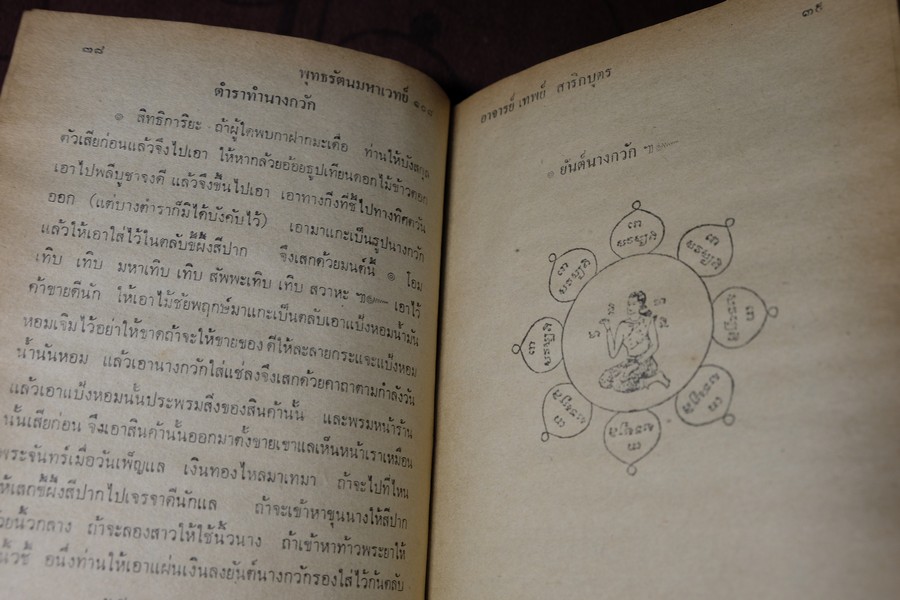 ๓๘
พุทธรัตนมหาเวทย์ ๑๐๘
ตำราทำนางกวัก
๏ สิทธิการิยะ ถ้าผู้ใดพบกาฝากมะเดื่อ ท่านให้บังสกุล
ตัวเสียก่อนแล้วจึงไปเอา ให้หากล้วยอ้อยธูปเทียนดอกไม้ข้าวตอก
เอาไปพลีบูชาจงดี แล้วจึงขึ้นไปเอา เอาทางกิ่งที่ชี้ไปทางทิศตวัน
ออก (แต่บางตำราก็มิได้บังคับไว้) เอามาแกะเป็นรูปนางกวัก
แล้วให้เอาใส่ไว้ในตลับขี้ผึ้งสีปาก จึงเสกด้วยมนต์นี้ ๏ โอม
เทิบ เทิบ มหาเทิบ เทิบ สัพพะเทิบ เทิบ สวาหะ ๚๛ เอาไว้
ค้าขายดีนัก ให้เอาไม้ชัยพฤกษ์มาแกะเป็นตลับเอาแป้งหอมน้ำมัน
หอมเจิมไว้อย่าให้ขาดถ้าจะให้ขายของดีให้ละลายกระแจะแป้งหอม
น้ำมันหอม แล้วเอานางกวักใส่แช่ลงจึงเสกด้วยคาถาตามกำลังวัน
แล้วเอาแป้งหอมนั้นประพรมสิ่งของสินค้านั้น และพรมหน้าร้าน
นั้นเสียก่อน จึงเอาสินค้านั้นออกมาตั้งขายเขาแลเห็นหน้าเราเหมือน
พระจันทร์เมื่อวันเพ็ญแล เงินทองไหลมาเทมา ถ้าจะไปที่ไหน
ให้เสกขี้ผึ้งสีปากไปเจรจาดีนักแล ถ้าจะเข้าหาขุนนางให้สีปาก
ด้วยนิ้วกลาง ถ้าจะลองสาวให้ใช้นิ้วนาง ถ้าเข้าหาท้าวพระยาให้
นิ้วชี้ อนึ่งท่านให้เอาแผ่นเงินลงยันต์นางกวักรองใส่ไว้ก้นตลับ
๓๙
อาจารย์ เทพย์ สาริกบุตร
๏ ยันต์นางกวัก ๚๛